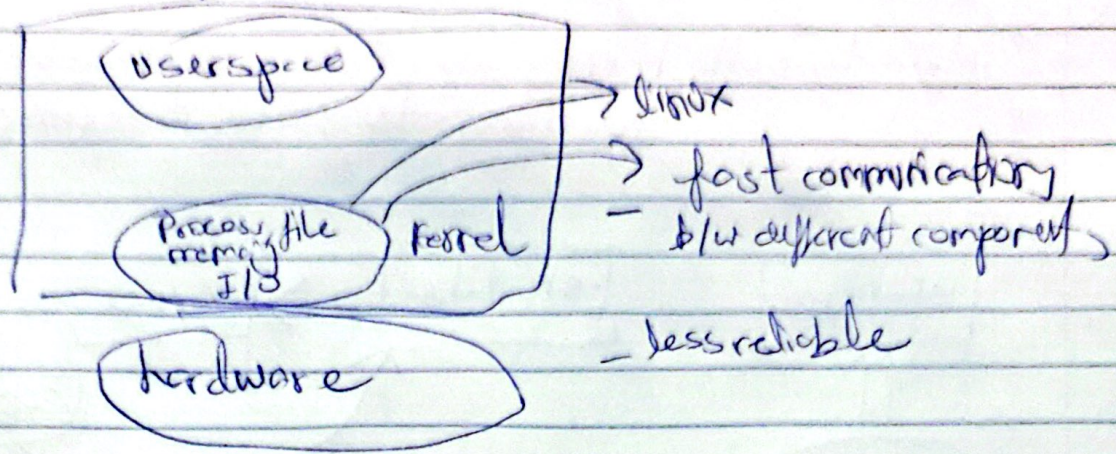 userspace
Process, file
memory
I/O
kernel
hardware
linux
- fast communication
b/w different components
- less reliable